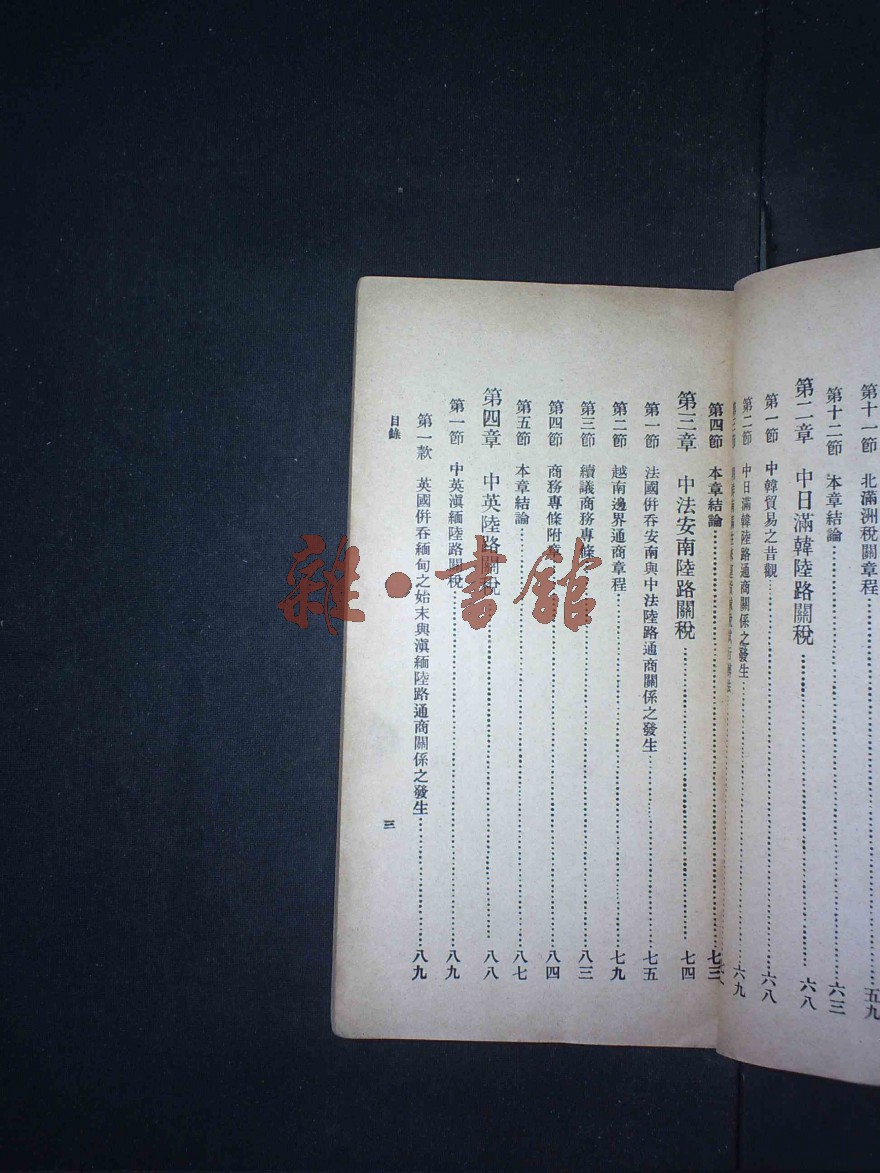 第十一節　北滿洲稅關章程……五九
第十二節　本章結論……六三
第二章　中日滿韓陸路關稅……六八
第一節　中韓貿易之昔觀……六八
第二節　中日滿韓陸路通商關係之發生……六九
第四節　本章結論……七三
第三章　中法安南陸路關稅……七四
第一節　法國併吞安南與中法陸路通商關係之發生……七五
第二節　越南邊界通商章程……七九
第三節　續議商務專條……八三
第四節　商務專條附章……八四
第五節　本章結論……八七
第四章　中英陸路關稅……八八
第一節　中英滇緬陸路關稅……八九
第一款　英國併吞緬甸之始末與滇緬陸路通商關係之發生……八九
目錄
三
雜·書館